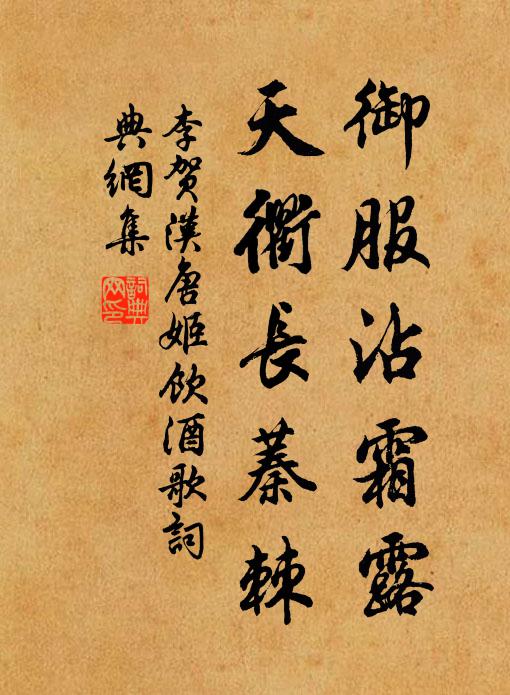 御服沾霜露
天衢長蓁棘
李贺漢唐姬飲酒歌詞
典網集
詞典
网印